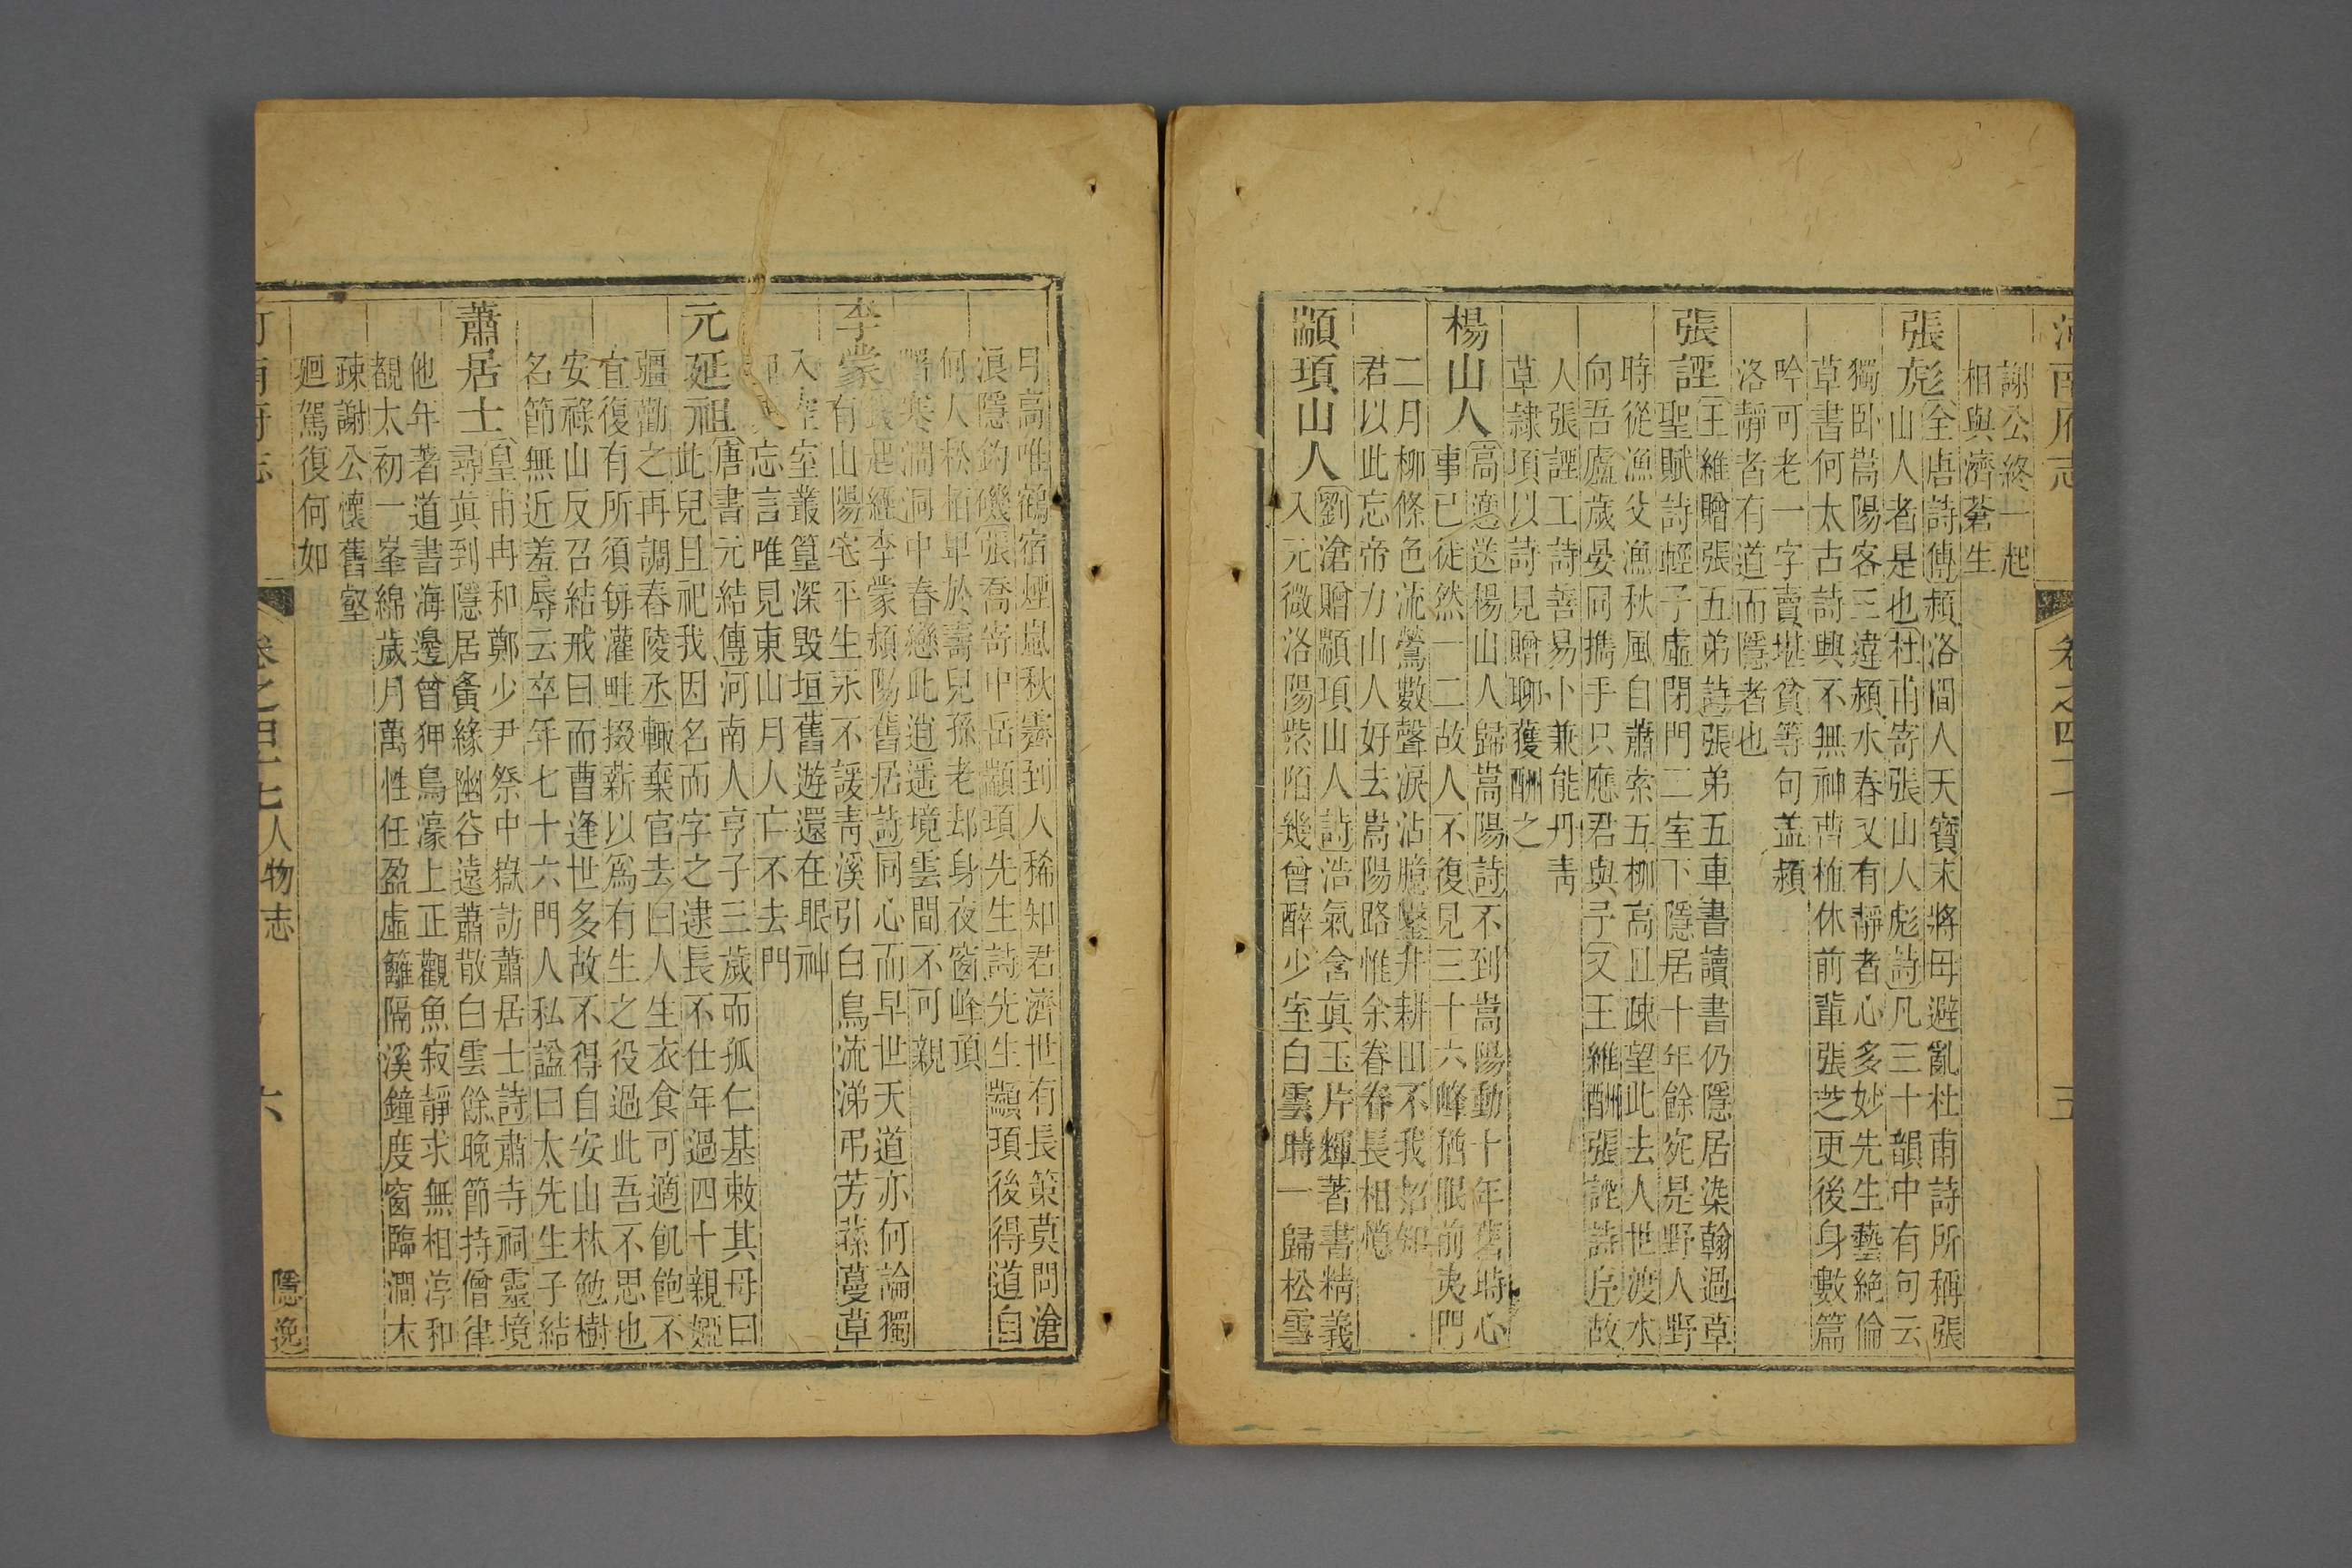 河南府志 卷之四十七 五
謝公終一起
相與濟蒼生
張彪
全唐詩傳潁洛間人天寶末將母避亂杜甫詩所稱張
山人者是也杜甫寄張山人彪詩凡三十韻中有句云
獨卧嵩陽客三違潁水春又有靜者心多妙先生藝絕倫
草書何太古詩興不無神曹植休前輩張芝更後身數篇
吟可老一字賣堪貧等句盖潁
洛靜者有道而隱者也
張諲
王維贈張五弟詩張弟五車書讀書仍隱居染翰過草
聖賦詩輕子虛閉門二室下隱居十年餘宛是野人野
時從漁父漁秋風自蕭索五柳高且疎望此去人世渡水
向吾廬歲晏同擕手只應君與予又王維酬張諲詩序故
人張諲工詩善易卜兼能丹青
草隸項以詩見贈聊獲酬之
楊山人
高適送楊山人歸嵩陽詩不到嵩陽動十年舊時心
事已徒然一二故人不復見三十六峰猶眼前夷門
二月柳條色流鶯數聲淚沾臆鑿井耕田不我招知
君以此忘帝力山人好去嵩陽路惟余眷眷長相憶
顓頊山人
劉滄贈顓頊山人詩浩氣含真玉片輝著書精義
入元微洛陽紫陌幾曾醉少室白雲時一歸松雪
月高唯鶴宿煙嵐秋霽到人稀知君濟世有長策莫問滄
浪隱釣磯張喬寄中岳顓頊先生詩先生顓頊後得道自
何人松栢卑於壽兒孫老却身夜窗峰頂
曙寒澗洞中春戀此逍遥境雲間不可親
李蒙
錢起經李蒙潁陽舊居詩同心而早世天道亦何論獨
有山陽宅平生永不諼靑溪引白鳥流涕弔芳蓀蔓草
入空室叢篁深毁垣舊遊還在眠神
忘言唯見東山月人亡不去門
元延祖
唐書元結傳河南人亨子三歲而孤仁基敕其母曰
此兒且祀我因名而字之逮長不仕年過四十親婭
疆勸之再調舂陵丞輒棄官去曰人生衣食可適飢飽不
宜復有所須毎灌畦掇薪以爲有生之役過此吾不思也
安祿山反召結戒曰而曹逢世多故不得自安山林勉樹
名節無近羞辱云卒年七十六門人私謚曰太先生子結
蕭居士
皇甫冉和鄭少尹祭中嶽訪蕭居士詩肅寺祠靈境
尋真到隱居夤緣幽谷遠蕭散白雲餘晚節持僧律
他年著道書海邊曾狎鳥濠上正觀魚寂靜求無相淳和
覩太初一峯綿歲月萬性任盈虛籬隔溪鐘度窗臨澗木
疎謝公懷舊壑
廻駕復何如
河南府志 卷之四十七 人物志 六 隱逸